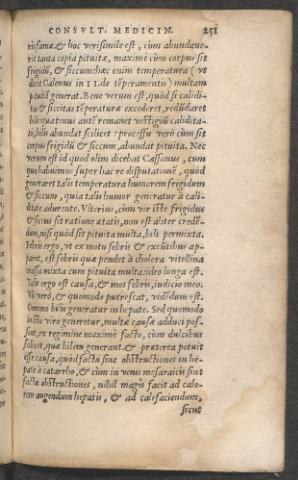 CONSVLT. MEDICIN. 251
& hoc verisimile est, cùm abundaue-
rit tanta copia pituitæ, maximè cùm corpus sit
frigidū, & siccum: hæc enim temperatura (vt
dicit Galenus in II. de tēperamentis) multam
pituitā generat. Benè verum est, quòd si calidi-
tas & siccitas tēperaturæ excederet, redūdaret
bilis: quatenus autē remanet vestigiū calidita-
tis, bilis abundat scilicet: processu verò cùm sit
corpus frigidū & siccum, abundat pituita. Nec
verum est id quod olim dicebat Cassanus, cum
quo habuimus super hac re disputationē, quòd
generaret talis temperatura humorem frigidum
& siccum, quia talis humor generatur à cali-
ditate adurente. Vlterius, cùm vir iste frigidus
& siccus sit ratione ætatis, non est aliter creden-
dum, nisi quòd sit pituita multa, bili permixta.
Febris ergo, vt ex motu febris & excutibus ap-
paret, est febris quæ pendet à cholera vitellina
crassa mixta cum pituita multa: ideo longa est.
Talis ergo est causa, & mos febris, iudicio meo.
Vbi verò, & quomodo putrescat, videndum est.
Omnino bilis generatur in hepate. Sed quomodo
in isto viro generetur, multæ causæ adduci pos-
sunt, ex regimine maximè facto, cùm dulcibus
quæ bilem generant. & præterea potuit
esse causa, quòd factæ sint obstructiones in he-
pate à catarrho, & cùm in venis mesaraicis sint
factæ obstructiones, nihil magis facit ad calo-
rem augendum hepatis, & ad calefaciendum,
sicut